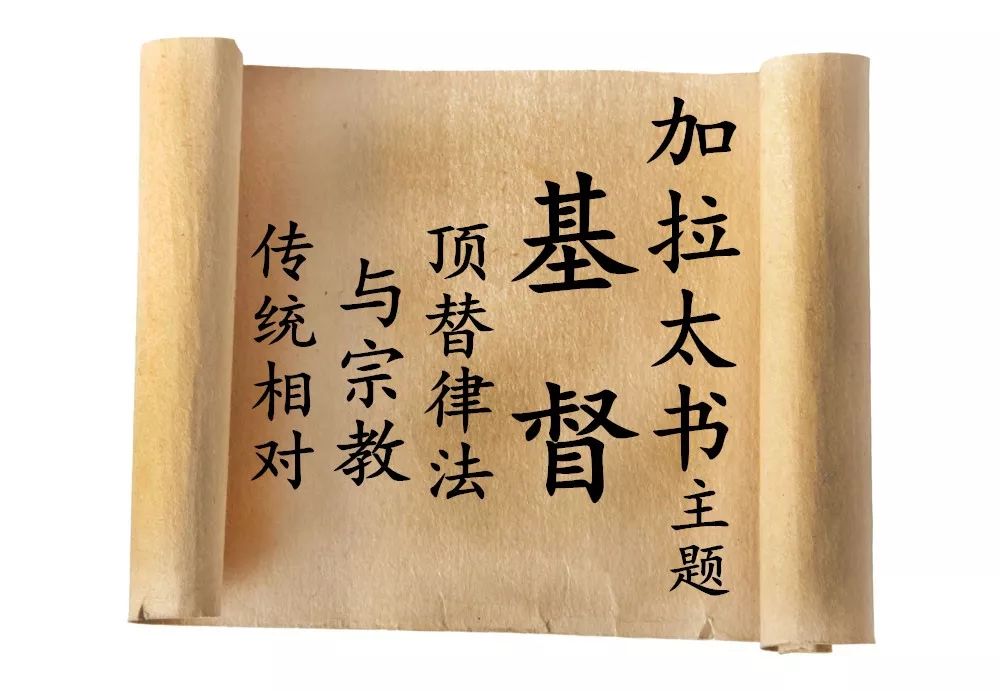 加拉太书主题
基督
顶替律法
与宗教
传统相对